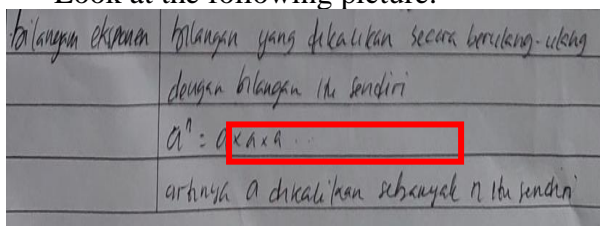 Look at the following picture:
bilangan eksponen bilangan yang dikalikan secara berulang-ulang
dengan bilangan itu sendiri
a^n = a x a x a ...
artinya a dikalikan sebanyak n itu sendiri